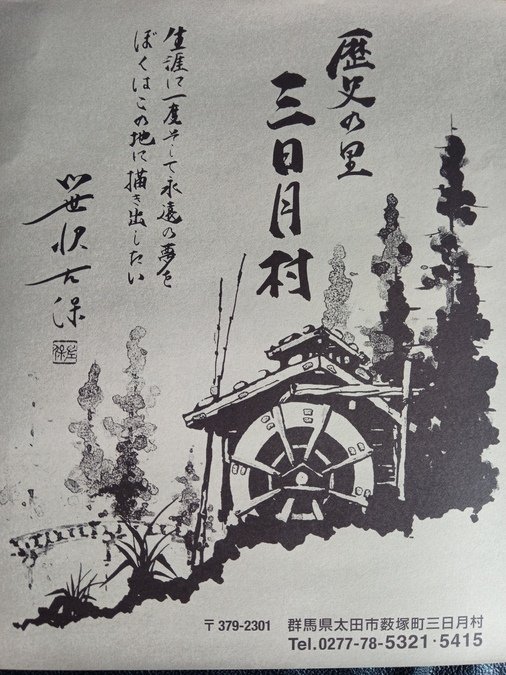 歴史の里
三日月村
生涯に一度そして永遠の夢を
ぼくはこの地に描き出したい
笹沢左保
左保
〒379-2301 群馬県太田市薮塚町三日月村
Tel.0277-78-5321·5415